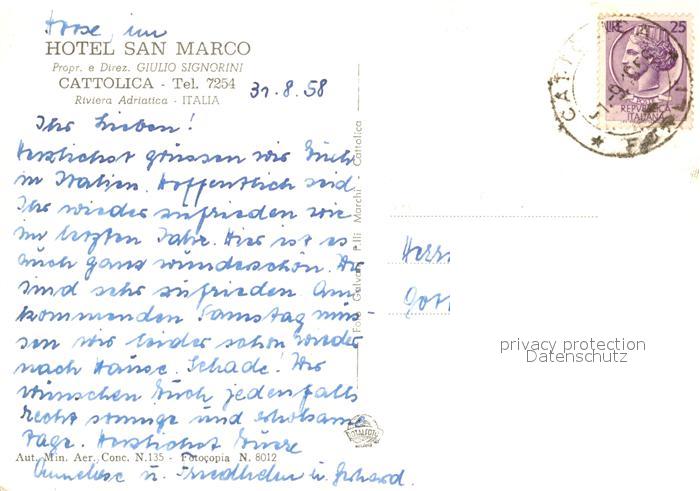 HOTEL SAN MARCO
Propr. e Direz. GIULIO SIGNORINI
CATTOLICA - Tel. 7254
Riviera Adriatica - ITALIA
31.8.58
Ihr Lieben!
Herzlichst grüssen wir Euch
in Italien. Hoffentlich seid
Ihr wieder zufrieden wie
im letzten Jahr. Hier ist es
auch ganz wunderschön. Wir
sind sehr zufrieden. Am
kommenden Samstag müs-
sen wir leider schon wieder
nach Hause. Schade! Wir
wünschen Euch jedenfalls
recht sonnige und erholsame
Tage. Herzlichst Eure
Aut. Min. Aer. Conc. N.135 - Fotocopia N. 8012
Anneliese u. Friedhelm u. Gerhard.
Foto Galvani F.lli Marchi - Cattolica
LIRE 25
POSTE
REPVBBLICA
ITALIANA
Herrn
Gott
privacy protection
Datenschutz